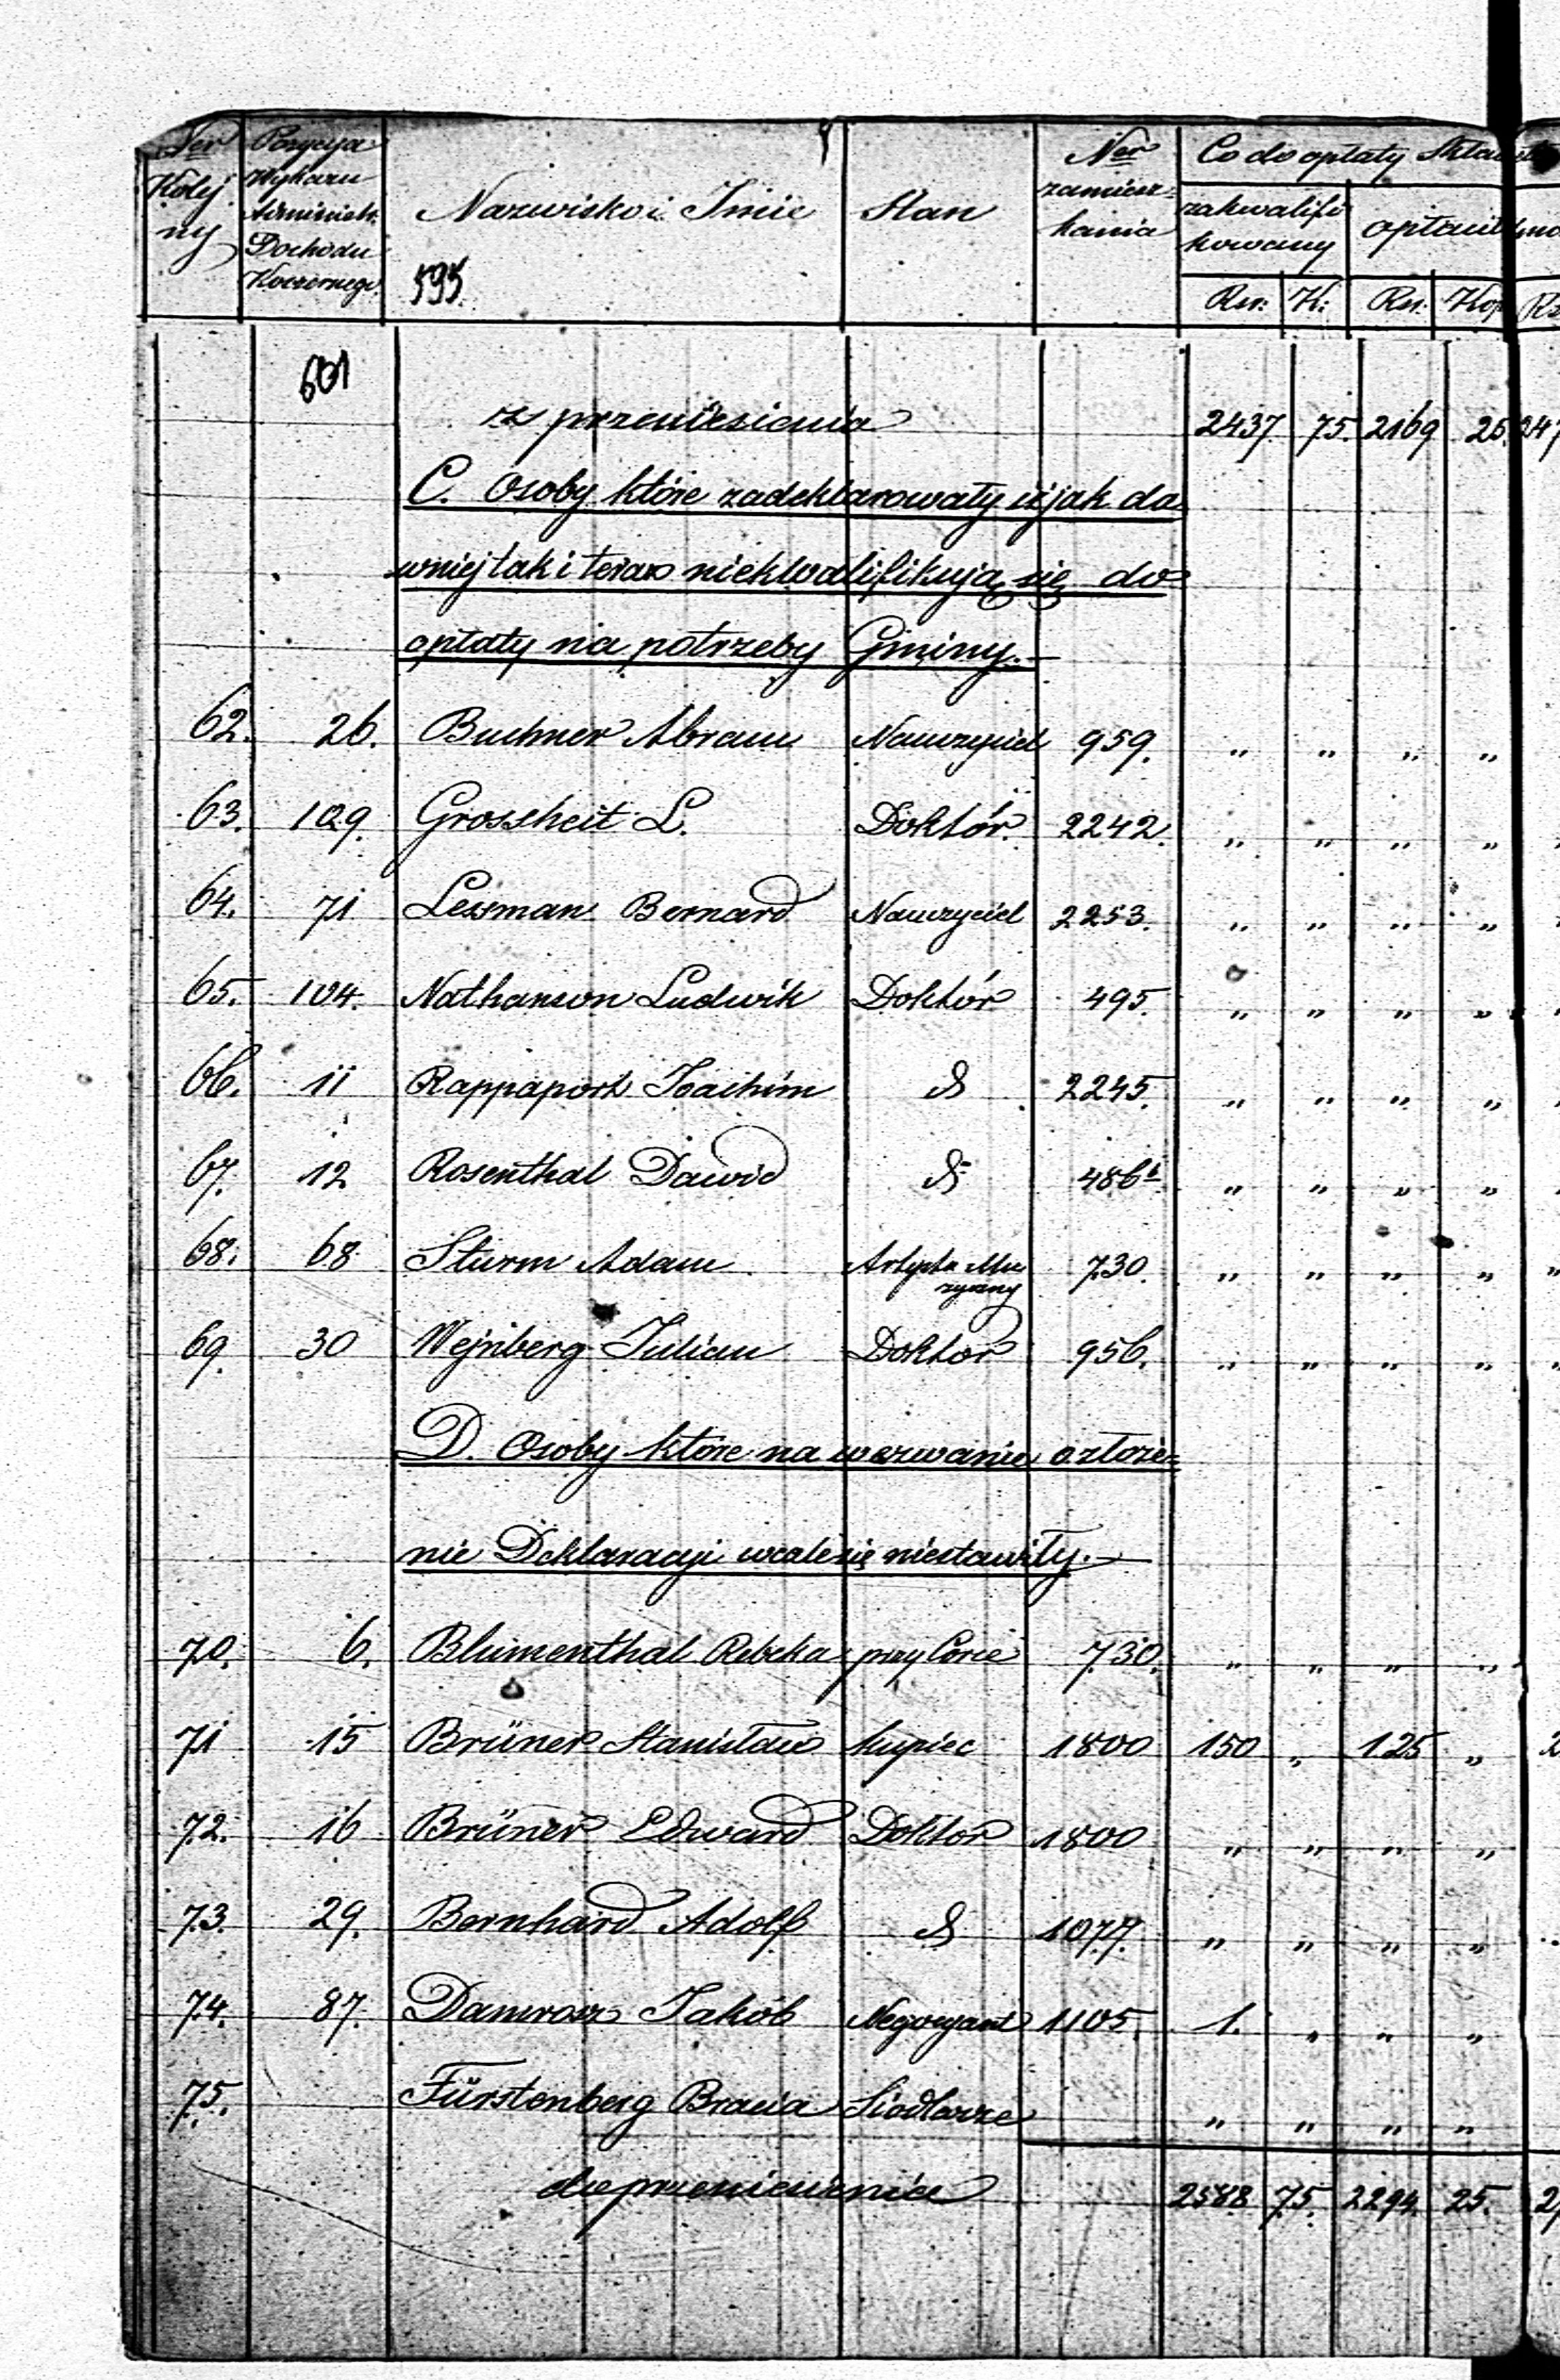 Ner Kolejny Pozycya Wykazu Administr. Dochodu Koszernego. Nazwisko i Imie Stan Ner zamiesz-kania Co do opłaty Składki
zakwalifikowany opłacił
Rsr. K: Rsr. Kop
595
601
z przeniesienia 2437 75. 2169 25 247
C. Osoby które zadeklarowały iż jak da
wniej tak i teraz niekwalifikują się do
opłaty na potrzeby Gminy.—
62. 26. Buchner Abram Nauczyciel 959. " " " "
63. 109. Grossheit L. Doktór. 2242. " " " "
64. 71 Lessman Bernard Nauczyciel 2253. " " " "
65. 104. Nathanson Ludwik Doktór 495. " " " "
66. 11 Rappaport Joachim d 2245. " " " "
67. 12 Rosenthal Dawid d 486b " " " "
68. 68 Sturm Adam Artysta Mu
zyczny 730. " " " "
69. 30 Wejnberg Julian Doktor 956. " " " "
D. Osoby które na wezwanie o złoże-
nie Deklaracyi wcale się niestawiły.—
70. 6. Blumenthal Rebeka przy Corce 730. " " " "
71 15 Brüner Stanisław kupiec 1800 150 " 125 " 2
72. 16 Brüner Edward Doktor 1800 " " " "
73. 29. Bernhard Adolf d 1077. " " " "
74. 87. Damrosz Jakób Negocyant 1105. 1. " " "
75. Fürstenberg Bracia Siodlarze " " " "
do przeniesienia 2588 75. 2294 25. 2